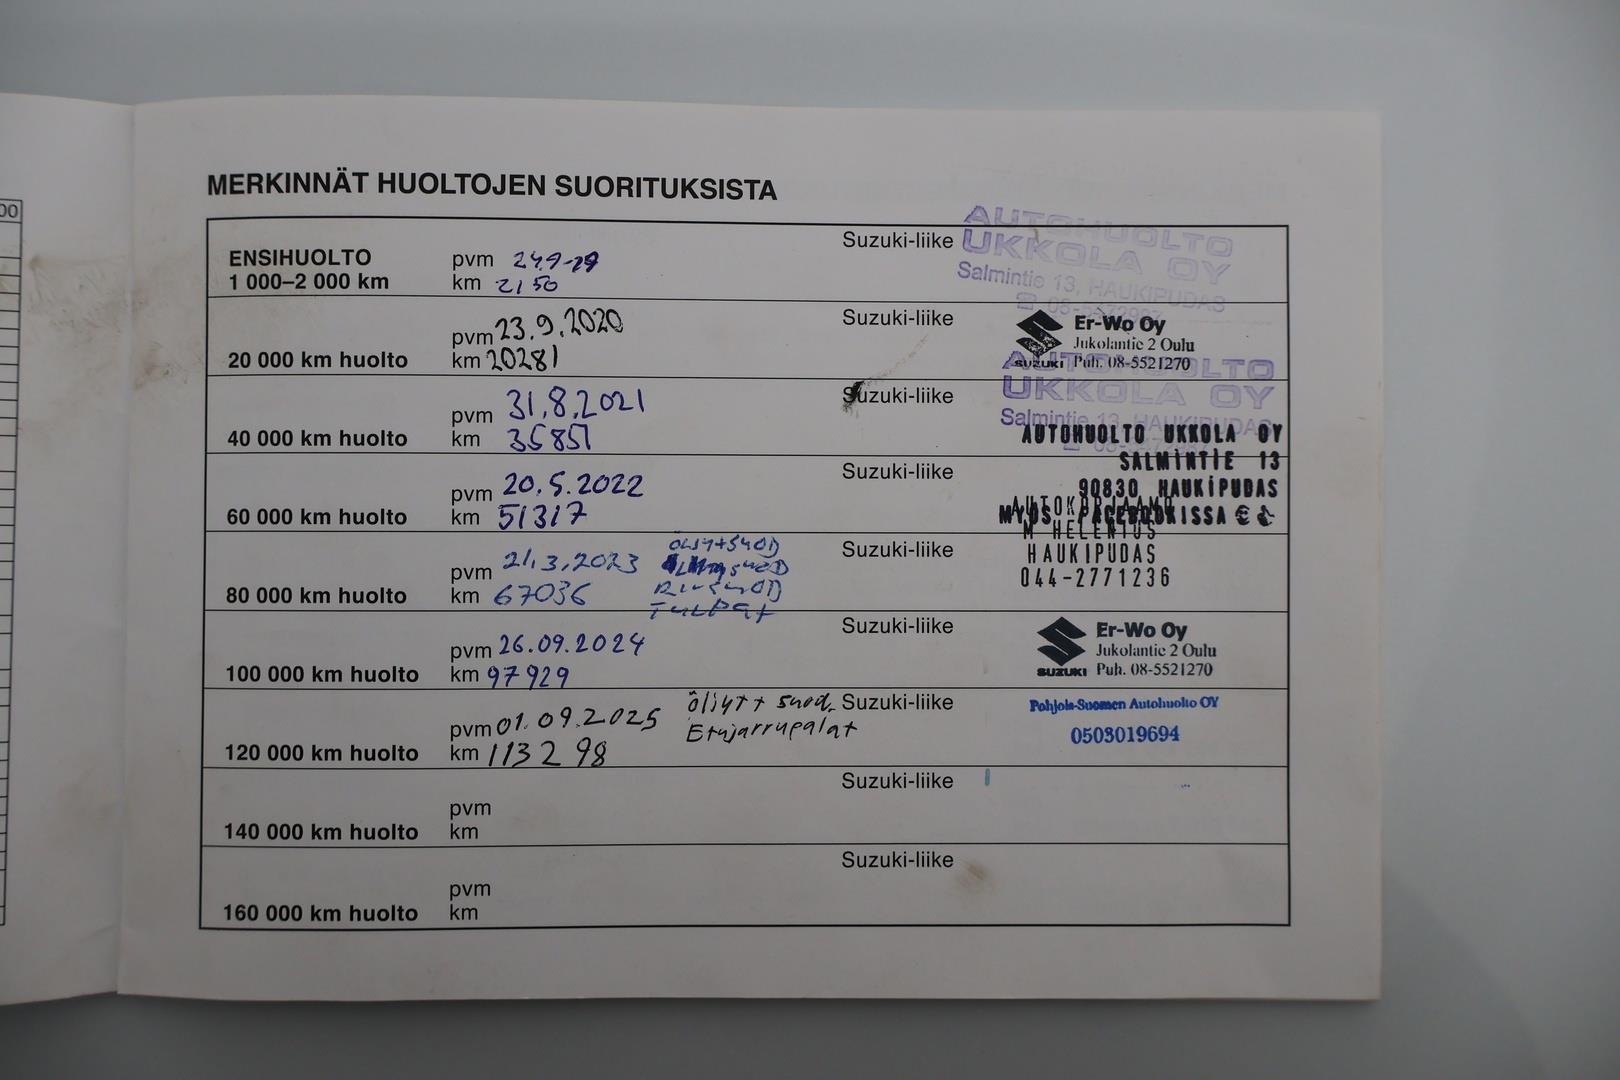 00
MERKINNÄT HUOLTOJEN SUORITUKSISTA
ENSIHUOLTO
1 000–2 000 km
pvm 24.9-19
km 2150
Suzuki-liike
AUTOHUOLTO
UKKOLA OY
Salmintie 13, HAUKIPUDAS
20 000 km huolto
pvm 23.9.2020
km 20281
Suzuki-liike
SUZUKI
Er-Wo Oy
Jukolantie 2 Oulu
Puh. 08-5521270
40 000 km huolto
pvm 31.8.2021
km 35851
Suzuki-liike
AUTOHUOLTO
UKKOLA OY
Salmintie 13, HAUKIPUDAS
60 000 km huolto
pvm 20.5.2022
km 51317
Suzuki-liike
AUTOHUOLTO UKKOLA OY
SALMINTIE 13
90830 HAUKIPUDAS
MYÖS FACEBOOKISSA
80 000 km huolto
pvm 21.3.2023
km 67036
ÖLJY+SUOD
TULPAT
Suzuki-liike
AUTOKORJAAMO
M HELENIUS
HAUKIPUDAS
044-2771236
100 000 km huolto
pvm 26.09.2024
km 97929
Suzuki-liike
SUZUKI
Er-Wo Oy
Jukolantie 2 Oulu
Puh. 08-5521270
120 000 km huolto
pvm 01.09.2025
km 113298
öljyt + suod.
Etujarrupalat
Suzuki-liike
Pohjois-Suomen Autohuolto OY
0503019694
140 000 km huolto
pvm
km
Suzuki-liike
160 000 km huolto
pvm
km
Suzuki-liike